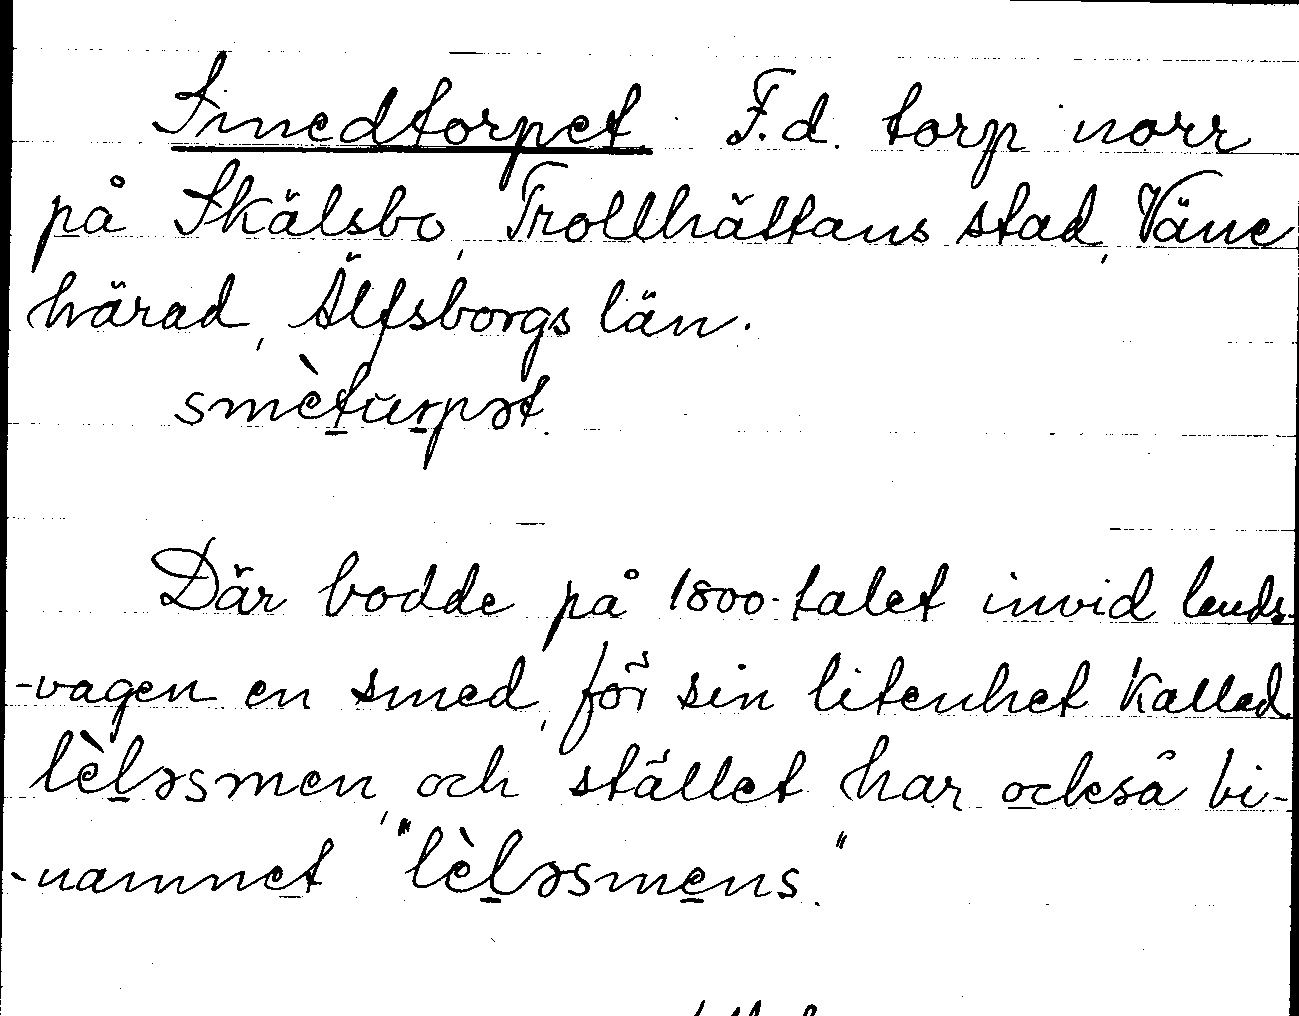 Smedtorpet. F.d. torp norr
på Skälsbo, Trollhättans stad, Väne
härad, Älfsborgs län.
smètu̇rpət.
Där bodde på 1800-talet invid lands-
-vagen en smed, för sin litenhet kallad
lèləsmen, och stället har också bi-
-namnet "lèləsmens."